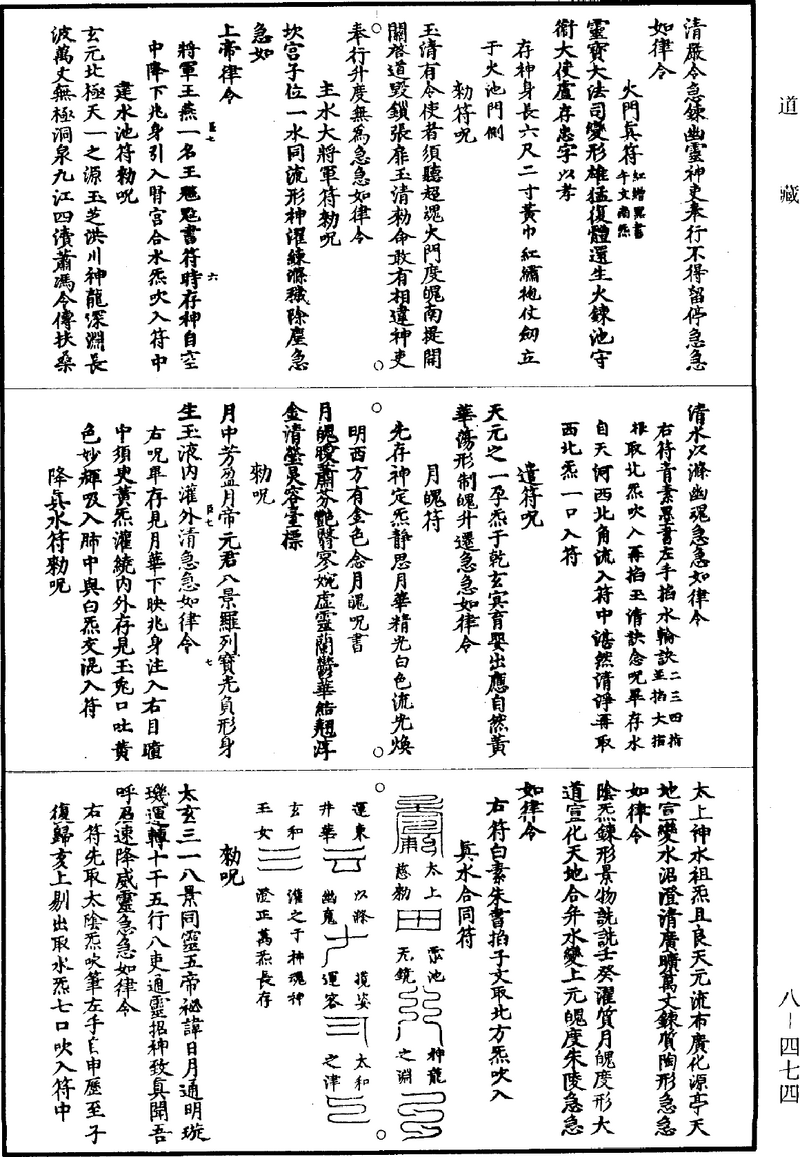 道藏
清嚴令急鍊幽靈神吏奉行不得留停急急
如律令
火門真符紅繒黑書午文南炁
靈寶大法司變形雄猛復體還生火鍊池守
衛大使盧存忠字以孝
存神身長六尺二寸黃巾紅繡袍仗劒立
于火池門側
勑符呪
玉清有令使者須聽超魂火門度魄南提開
關啓道毀鎖張扉玉清勑命敢有相違神吏
奉行升度無為急急如律令
主水大將軍符勑呪
坎宮子位一水同流形神濯練滌穢除塵急
急如
上帝律令
將軍王燕一名王 書符時存神自空
中降下兆身引入腎宮合水炁吹入符中
建水池符勑呪
玄元北極天一之源玉芝洪川神龍深淵長
波萬丈無極洞泉九江四瀆蕭馮令傳扶桑
清水以滌幽魂急急如律令
右符青素墨書左手掐水輪訣二三四指並掐大指
根取北炁吹入再掐玉清訣念呪畢存水
自天河西北角流入符中湛然清淨再取
西北炁一口入符
遣符呪
天元之一孕炁于乾玄冥育嬰出應自然黃
華蕩形制魄升遷急急如律令
月魄符
先存神定炁靜思月華精光白色流光煥
明西方有金色念月魄呪書
月魄曖蕭芬艷翳寥婉虛靈蘭鬱華結翹淳
金清瑩炅容臺標
勑呪
月中芳盈月帝元君八景羅列寶光負形身
生玉液內灌外清急急如律令
右呪畢存見月華下映兆身注入右目瞳
中須臾黃炁灌繞內外存見玉兔口吐黃
色妙輝吸入肺中與白炁交混入符
降真水符勑呪
太上神水祖炁且良天元流布廣化源亭天
地言變水沼澄清廣曠萬丈鍊質陶形急急
如律令
陰炁鍊形景物詵詵壬癸濯質月魄度形大
道宣化天地合弁水變上元魄度朱陵急急
如律令
右符白素朱書掐子文取北方炁吹入
真水合同符
太上慈勑
家池无鏡
神龍之淵
運東井華
以滌幽䰟
摸姿運容
太和之津
玄和玉女
灌之于神魂神
澄正萬炁長存
勑呪
太玄三一八景同靈五帝祕諱日月通明璇
璣運轉十干五行八吏通靈招神致真聞吾
呼召速降威靈急急如律令
右符先取太陰炁吹筆左手自申歷至子
復歸亥上剔出取水炁七口吹入符中
八－四七四